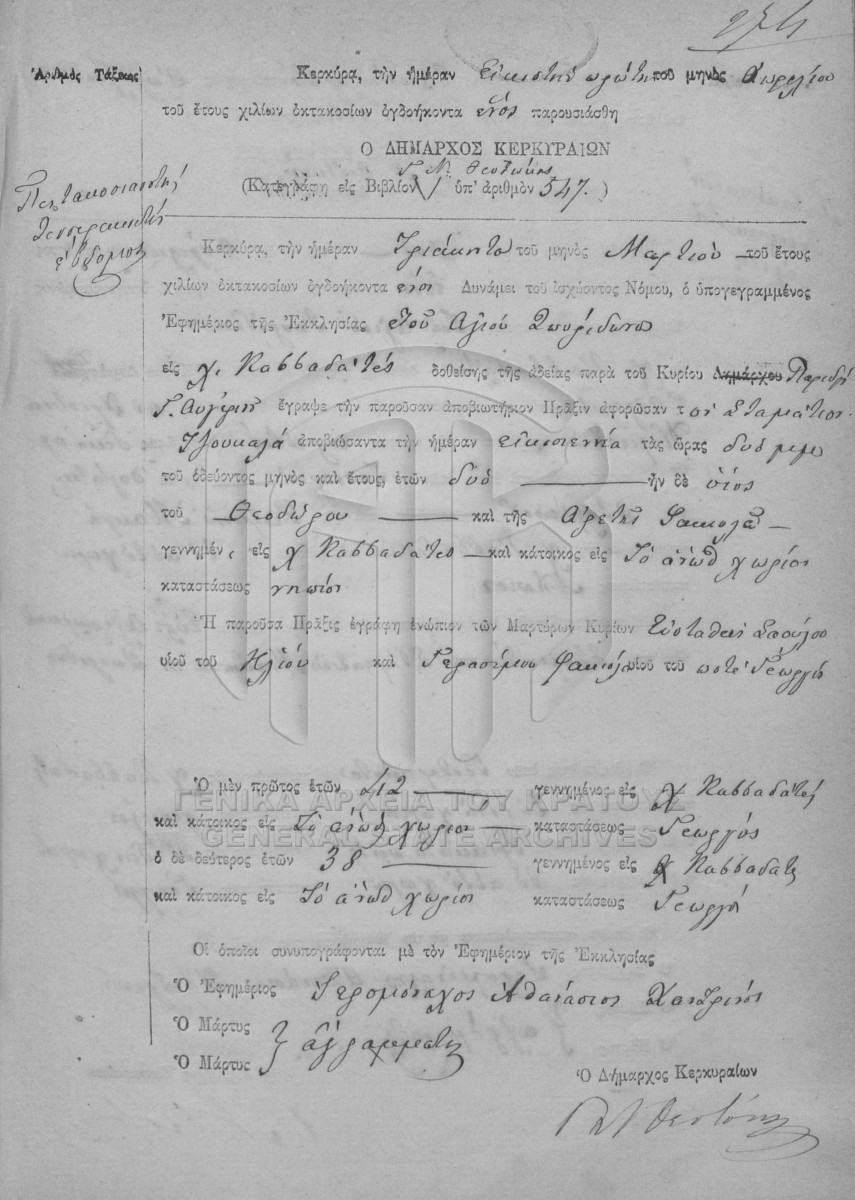 274
Ἀριθμὸς Τάξεως
Κερκύρα, τὴν ἡμέραν Εἰκοστὴν πρώτην τοῦ μηνὸς Απριλίου
τοῦ ἔτους χιλίων ὀκτακοσίων ὀγδοήκοντα ἑνός παρουσιάσθη
Ο ΔΗΜΑΡΧΟΣ ΚΕΡΚΥΡΑΙΩΝ
Γ. Μ. Θεοτόκης
(Κατεγράφη εἰς Βιβλίον ὑπ' ἀριθμὸν 547.)
Πεντακοσιοστὴ
τεσσαρακοστὴ
ἑβδόμη
Κερκύρα, τὴν ἡμέραν Τριάκοντα τοῦ μηνὸς Μαρτιοῦ τοῦ ἔτους
χιλίων ὀκτακοσίων ὀγδοήκοντα ενός Δυνάμει τοῦ ἰσχύοντος Νόμου, ὁ ὑπογεγραμμένος
Ἐφημέριος τῆς Ἐκκλησίας Του Αγιου Σπυρίδωνος
εἰς χ. Καββαδάτες δοθείσης τῆς ἀδείας παρὰ τοῦ Κυρίου Δημάρχου Παρέδρ
Γ. Αυγερη ἔγραψε τὴν παροῦσαν ἀποβιωτήριον Πρᾶξιν ἀφορῶσαν τον Σταμάτιον
Τζουκαλά ἀποβιώσαντα τὴν ἡμέραν εικοσιεννία τὰς ὥρας δυό μ.μ.
τοῦ ὁδεύοντος μηνὸς καὶ ἔτους, ἐτῶν δυό ἦν δὲ υἱος
τοῦ Θεοδώρου καὶ τῆς Αρετης Φακιολᾶ
γεννημέν. εἰς χ Καββαδάτες καὶ κάτοικος εἰς Τό ανωθ χωρίον
καταστάσεως νηπίον
Ἡ παροῦσα Πρᾶξις ἐγράφη ἐνώπιον τῶν Μαρτύρων Κυρίων Ευσταθιου Σαούλου
υἱοῦ τοῦ Ηλιού καὶ Γερασίμου Φακιολᾶ υἱοῦ τοῦ ποτέ Γεωργίου
Ὁ μὲν πρῶτος ἐτῶν 42 γεννημένος εἰς χ Καββαδάτες
καὶ κάτοικος εἰς Τό ανωθ χωριον καταστάσεως Γεωργός
ὁ δὲ δεύτερος ἐτῶν 38 γεννημένος εἰς χ Καββαδατες
καὶ κάτοικος εἰς Τό ανωθ χωρίον καταστάσεως Γεωργό
Οἱ ὁποῖοι συνυπογράφονται μὲ τὸν Ἐφημέριον τῆς Ἐκκλησίας
Ὁ Ἐφημέριος Ιερομόναχος Αθανάσιος
Ὁ Μάρτυς
Ὁ Μάρτυς } αγραμματοι
Ὁ Δήμαρχος Κερκυραίων
Γ. Μ. Θεοτόκης
ΓΕΝΙΚΑ ΑΡΧΕΙΑ ΤΟΥ ΚΡΑΤΟΥΣ
GENERAL STATE ARCHIVES